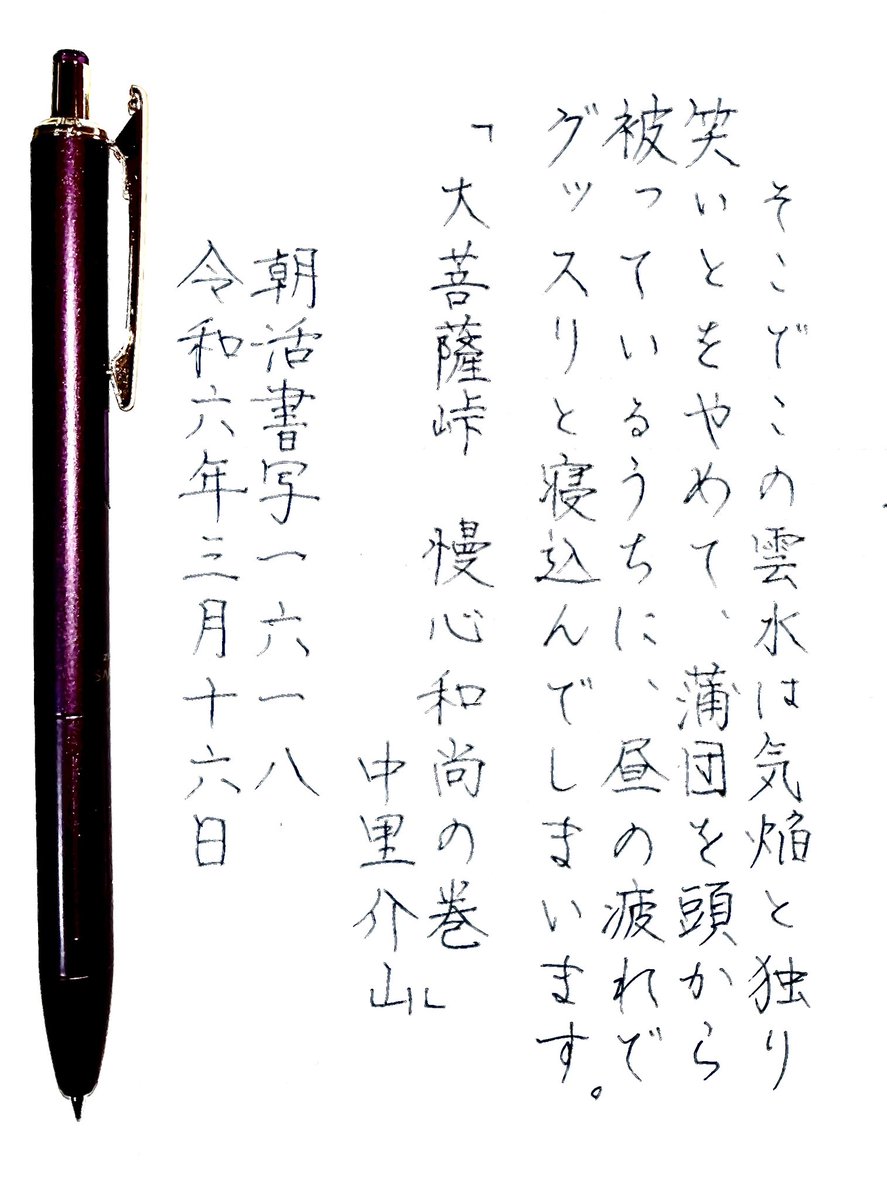 そこでこの雲水は気焔と独り
笑いとをやめて、蒲団を頭から
被っているうちに、昼の疲れで
グッスリと寝込んでしまいます。
「大菩薩峠　慢心和尚の巻」
中里介山
朝活書写一六一八
令和六年三月十六日